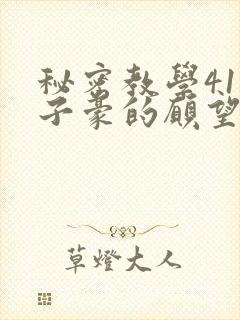 秘密教學41
子豪的願望
草燈大人